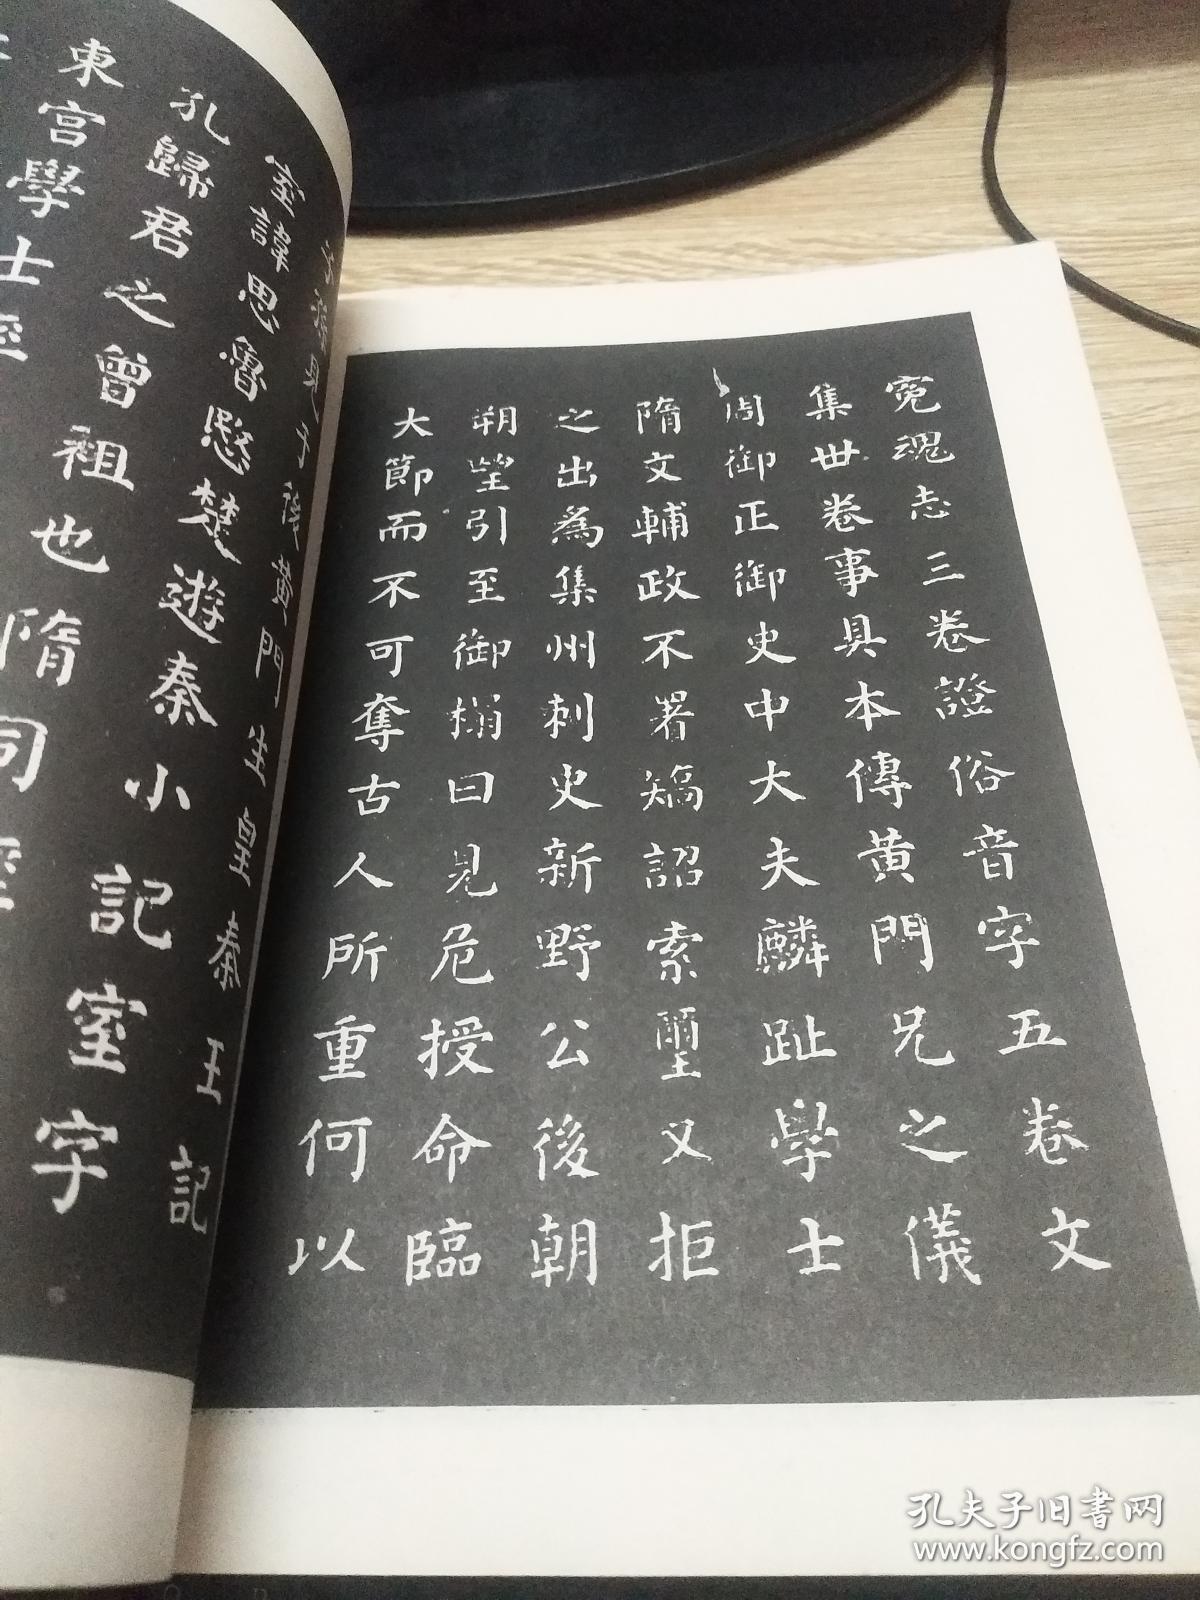 冤魂志三卷證俗音字五卷文
集世卷事具本傳黃門兄之儀
周御正御史中大夫麟趾學士
隋文輔政不署矯詔索璽又拒
之出為集州刺史新野公後朝
朔望引至御榻曰見危授命臨
大節而不可奪古人所重何以
子後黃門生皇秦王記
室諱思魯愍楚遊秦小記室字
孔歸君之曾祖也隋司
東宮學士
孔夫子旧书网
www.kongfz.com